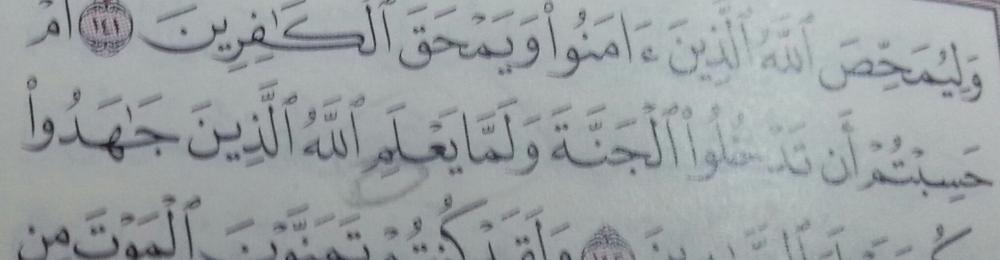 وَلِيُمَحِّصَ ٱللَّهُ ٱلَّذِينَ ءَامَنُوا۟ وَيَمْحَقَ ٱلْكَـٰفِرِينَ ١٤١ أَمْ
حَسِبْتُمْ أَن تَدْخُلُوا۟ ٱلْجَنَّةَ وَلَمَّا يَعْلَمِ ٱللَّهُ ٱلَّذِينَ جَـٰهَدُوا۟
وَلَقَدْ كُنتُمْ تَمَنَّوْنَ ٱلْمَوْتَ مِن